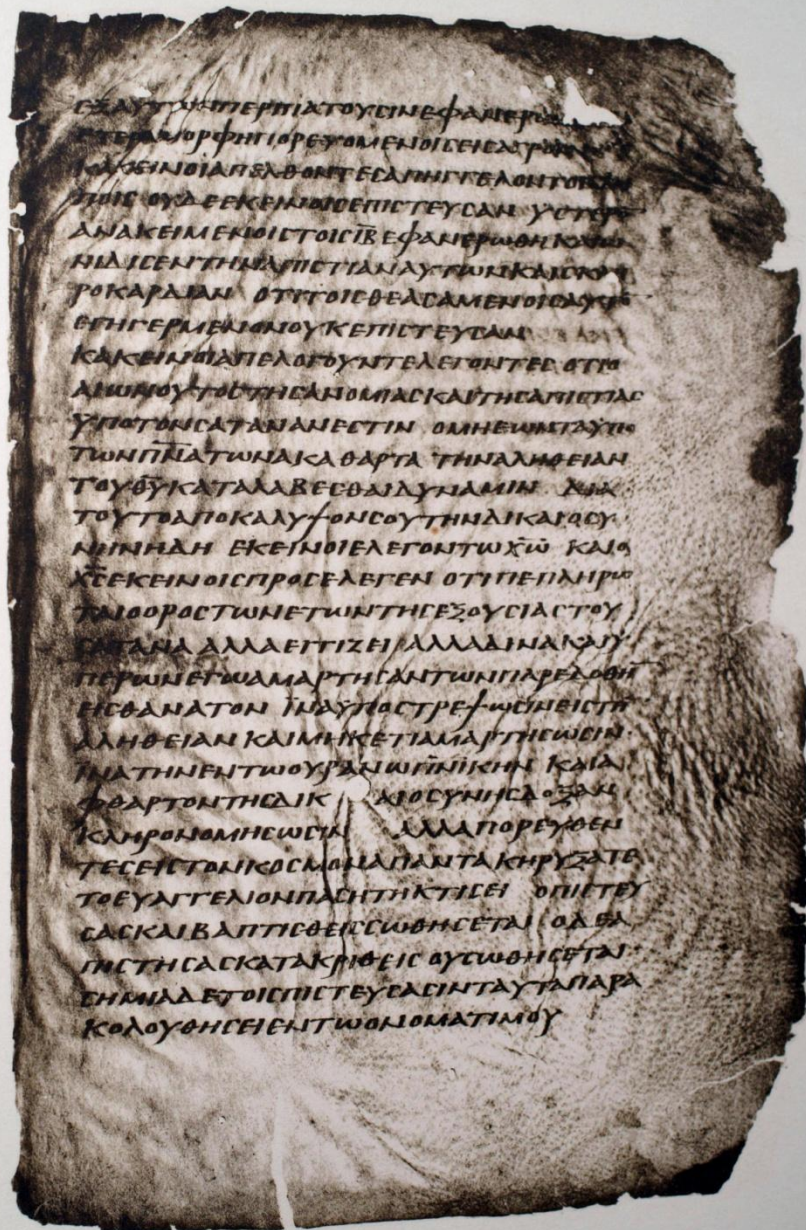 ΕΞΑΥΤΩΝΠΕΡΠΙΑΤΟΥϹΙΝΕΦΑΝΕΡΩ
ΕΤΕΡΑΜΟΡΦΗΠΟΡΕΥΟΜΕΝΟΙϹΕΙϹΑΓΡΟΝ
ΚΑΚΕΙΝΟΙΑΠΕΛΘΟΝΤΕϹΑΠΗΓΓΕΛΟΝΤΟΙϹΛΟΙ
ΠΟΙϹ ΟΥΔΕΕΚΕΙΝΟΙϹΕΠΙϹΤΕΥϹΑΝ ΥϹΤΕΡΟ̅
ΑΝΑΚΕΙΜΕΝΟΙϹΤΟΙϹΙ̅Β̅ΕΦΑΝΕΡΩΘΗΚΑΙΩ
ΝΙΔΙϹΕΝΤΗΝΑΠΙϹΤΙΑΝΑΥΤΩΝΚΑΙϹΚΛΗ
ΡΟΚΑΡΔΙΑΝ ΟΤΙΤΟΙϹΘΕΑϹΑΜΕΝΟΙϹΑΥΤΟ̅
ΕΓΗΓΕΡΜΕΝΟΝΟΥΚΕΠΙϹΤΕΥϹΑΝ
ΚΑΚΕΙΝΟΙΑΠΕΛΟΓΟΥΝΤΕΛΕΓΟΝΤΕϹ ΟΤΙΟ
ΑΙΩΝΟΥΤΟϹΤΗϹΑΝΟΜΙΑϹΚΑΙΤΗϹΑΠΙϹΤΙΑϹ
ΥΠΟΤΟΝϹΑΤΑΝΑΝΕϹΤΙΝ ΟΜΗΕΩΝΤΑΥΠΟ
ΤΩΝΠ̅Ν̅ΑΤΩΝΑΚΑΘΑΡΤΑ ΤΗΝΑΛΗΘΕΙΑΝ
ΤΟΥΘ̅Υ̅ΚΑΤΑΛΑΒΕϹΘΑΙΔΥΝΑΜΙΝ ΔΙΑ
ΤΟΥΤΟΑΠΟΚΑΛΥΨΟΝϹΟΥΤΗΝΔΙΚΑΙΟϹΥ
ΝΗΝΗΔΗ ΕΚΕΙΝΟΙΕΛΕΓΟΝΤΩΧ̅Ω̅ ΚΑΙΟ
Χ̅Ϲ̅ΕΚΕΙΝΟΙϹΠΡΟϹΕΛΕΓΕΝ ΟΤΙΠΕΠΛΗΡΩ
ΤΑΙΟΟΡΟϹΤΩΝΕΤΩΝΤΗϹΕΞΟΥϹΙΑϹΤΟΥ
ϹΑΤΑΝΑ ΑΛΛΑΕΓΓΙΖΕΙ ΑΛΛΑΔΙΝΑΚΑΙΥ
ΠΕΡΩΝΕΓΩΑΜΑΡΤΗϹΑΝΤΩΝΠΑΡΕΔΟΘΗ̅
ΕΙϹΘΑΝΑΤΟΝ ΪΝΑΥΠΟϹΤΡΕΨΩϹΙΝΕΙϹΤΗ̅
ΑΛΗΘΕΙΑΝ ΚΑΙΜΗΚΕΤΙΑΜΑΡΤΗϹΩϹΙΝ
ΪΝΑΤΗΝΕΝΤΩΟΥΡΑΝΩΠ̅Ν̅ΙΚΗΝ ΚΑΙΑ
ΦΘΑΡΤΟΝΤΗϹΔΙΚ ΑΙΟϹΥΝΗϹΔΟΞΑΝ
ΚΛΗΡΟΝΟΜΗϹΩϹΙΝ ΑΛΛΑΠΟΡΕΥΘΕΝ
ΤΕϹΕΙϹΤΟΝΚΟϹΜΟΝΑΠΑΝΤΑΚΗΡΥΞΑΤΕ
ΤΟΕΥΑΓΓΕΛΙΟΝΠΑϹΗΤΗΚΤΙϹΕΙ ΟΠΙϹΤΕΥ
ϹΑϹΚΑΙΒΑΠΤΙϹΘΕΙϹϹΩΘΗϹΕΤΑΙ ΟΔΕΑ
ΠΙϹΤΗϹΑϹΚΑΤΑΚΡΙΘΕΙϹ ΟΥϹΩΘΗϹΕΤΑΙ
ϹΗΜΙΑΔΕΤΟΙϹΠΙϹΤΕΥϹΑϹΙΝΤΑΥΤΑΠΑΡΑ
ΚΟΛΟΥΘΗϹΕΙΕΝΤΩΟΝΟΜΑΤΙΜΟΥ